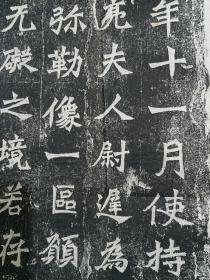 年十一月使持
亮夫人尉遲為
弥勒像一區願
无礙之境若存